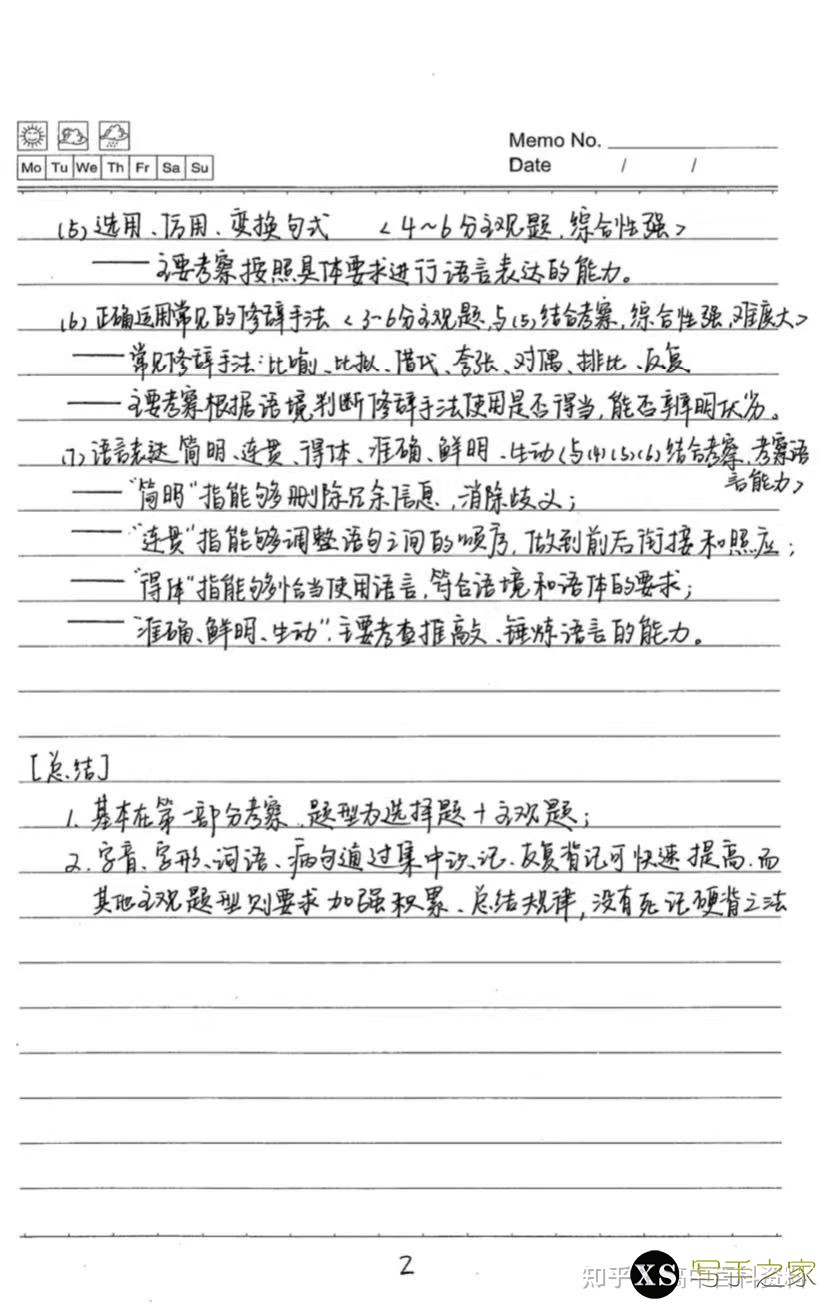 Memo No.
Mo Tu We Th Fr Sa Su
Date / /
(5) 选用、仿用、变换句式 <4~6分主观题,综合性强>
——主要考察按照具体要求进行语言表达的能力。
(6) 正确运用常见的修辞手法 <3~6分主观题,与(5)结合考察,综合性强,难度大>
——常见修辞手法:比喻、比拟、借代、夸张、对偶、排比、反复
——主要考察根据语境判断修辞手法使用是否得当,能否辨明优劣。
(7) 语言表达简明、连贯、得体、准确、鲜明、生动<与(4)(5)(6)结合考察,考察语
言能力>
——“简明”指能够删除冗余信息,消除歧义;
——“连贯”指能够调整语句之间的顺序,做到前后衔接和照应;
——“得体”指能够恰当使用语言,符合语境和语体的要求;
——“准确、鲜明、生动”:主要考查推敲、锤炼语言的能力。
[总结]
1. 基本在第一部分考察,题型为选择题+主观题;
2. 字音、字形、词语、病句通过集中识记、反复背记可快速提高,而
其他主观题型则要求加强积累、总结规律,没有死记硬背之法
2
知乎 高中百科资料
XS 写手之家